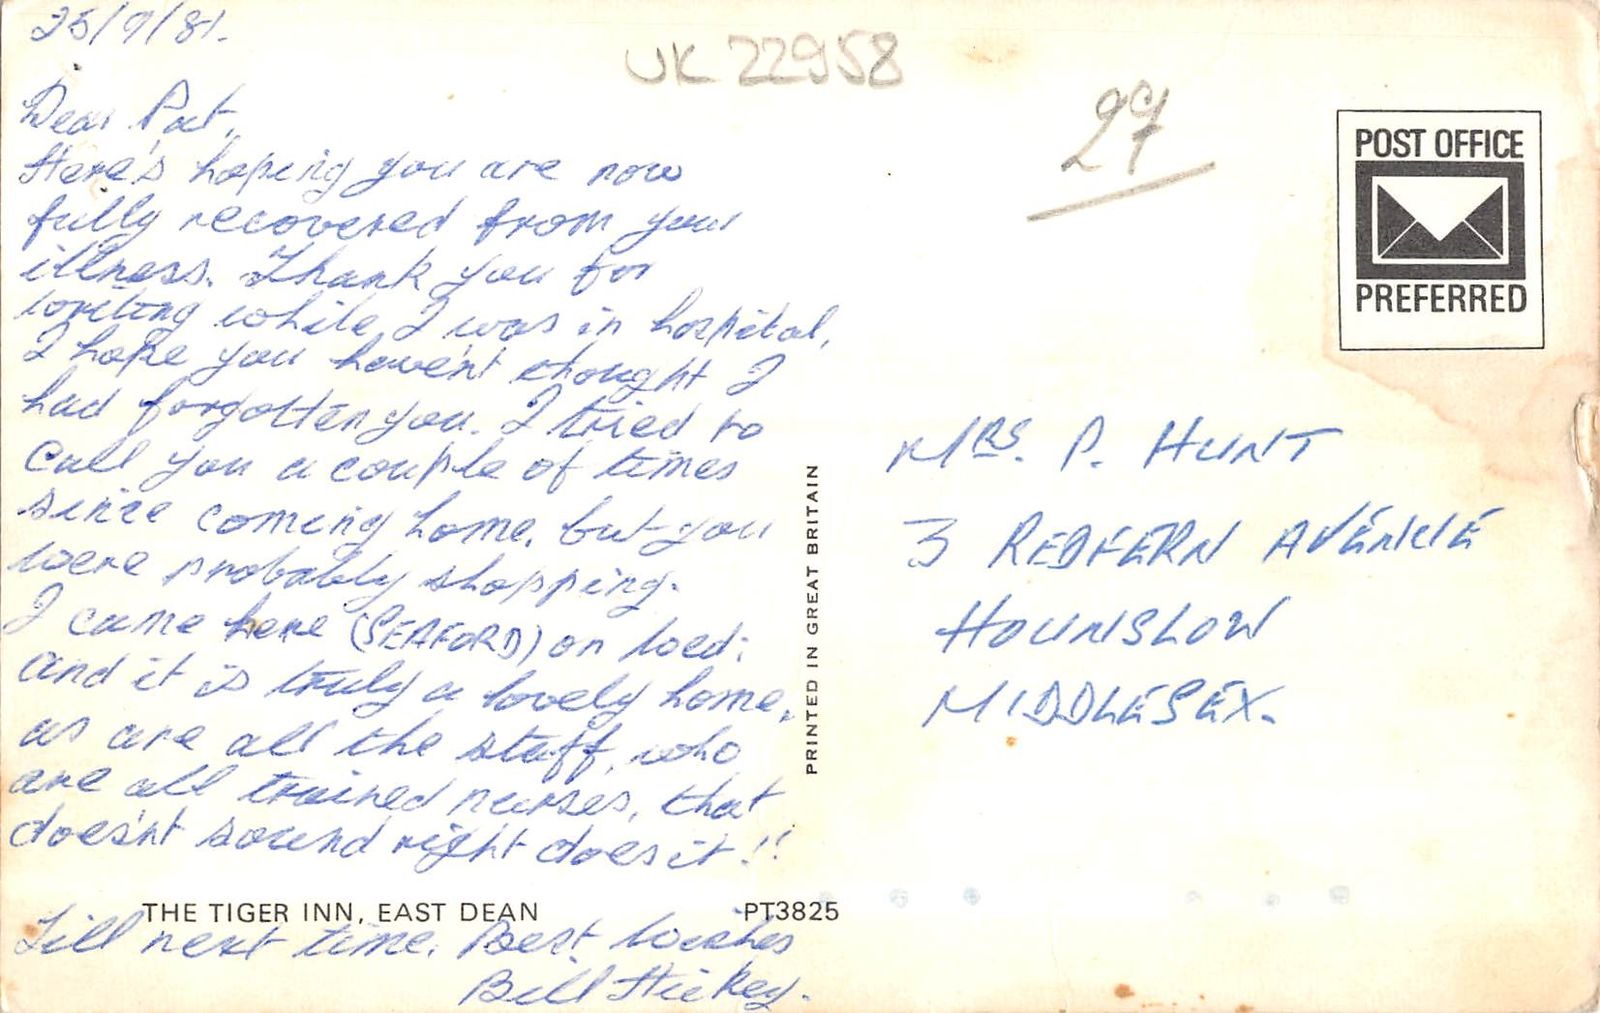 25/9/81.
UK 22958
Dear Pat,
Here's hoping you are now
fully recovered from your
illness. Thank you for
writing while I was in hospital,
I hope you haven't thought I
had forgotten you. I tried to
call you a couple of times
since coming home, but you
were probably shopping.
I came here (SEAFORD) on Wed:
and it is truly a lovely home,
as are all the staff, who
are all trained nurses, that
does'nt sound right does it!!
THE TIGER INN, EAST DEAN PT3825
Till next time. Best Wishes
Bill Hickey.
PRINTED IN GREAT BRITAIN
POST OFFICE
PREFERRED
MRS. P. HUNT
3 REDFERN AVENUE
HOUNSLOW
MIDDLESEX.